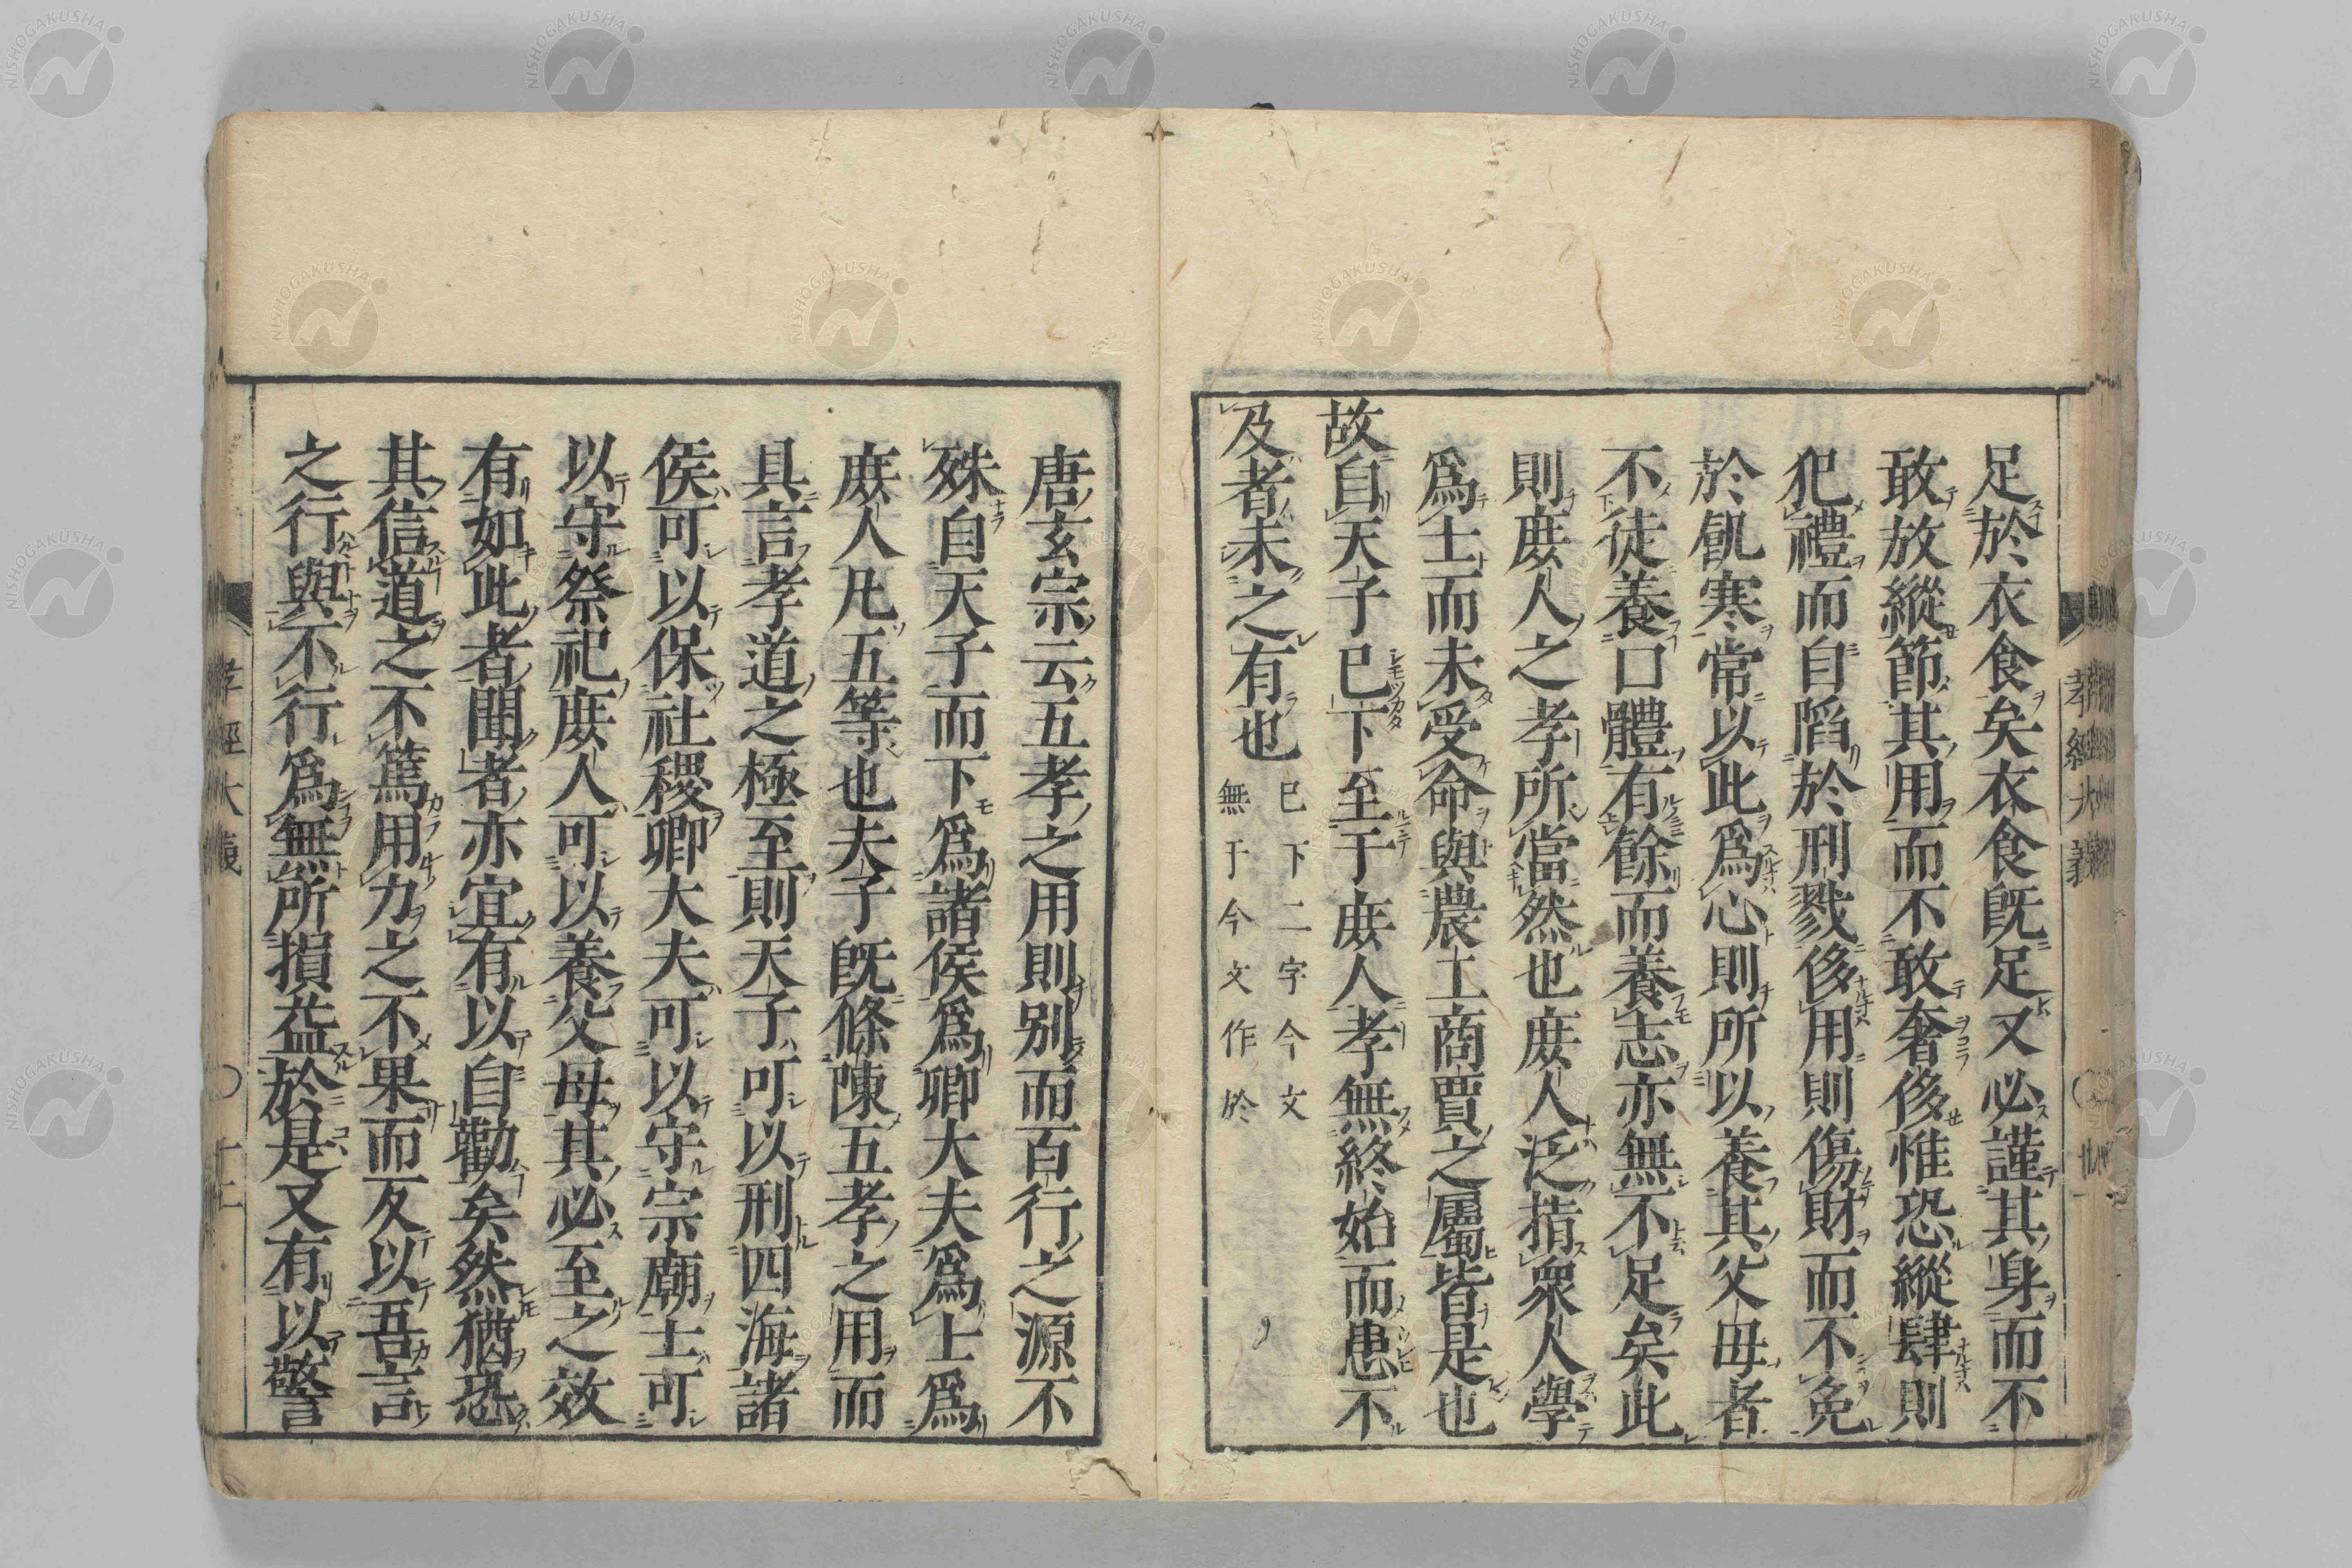 足於衣食矣衣食既足又必謹其身而不
敢放縱節其用而不敢奢侈惟恐縱肆則
犯禮而自陷於刑戮侈用則傷財而不免
於飢寒常以此爲心則所以養其父母者
不徒養口體有餘而養志亦無不足矣此
則庻人之孝所當然也庻人泛指衆人學
爲士而未受命與農工商賈之屬皆是也
故自天子已下至于庻人孝無終始而患不
及者未之有也
已下二字今文
無于今文作於
孝經大義
唐玄宗云五孝之用則别而百行之源不
殊自天子而下爲諸侯爲卿大夫爲士爲
庻人凡五等也夫子既條陳五孝之用而
具言孝道之極至則天子可以刑四海諸
侯可以保社稷卿大夫可以守宗廟士可
以守祭祀庻人可以養父母其必至之效
有如此者聞者亦宜有以自勸矣然猶恐
其信道之不篤用力之不果而反以吾言
之行與不行爲無所損益於是又有以警
孝經大義
NISHOGAKUSHA